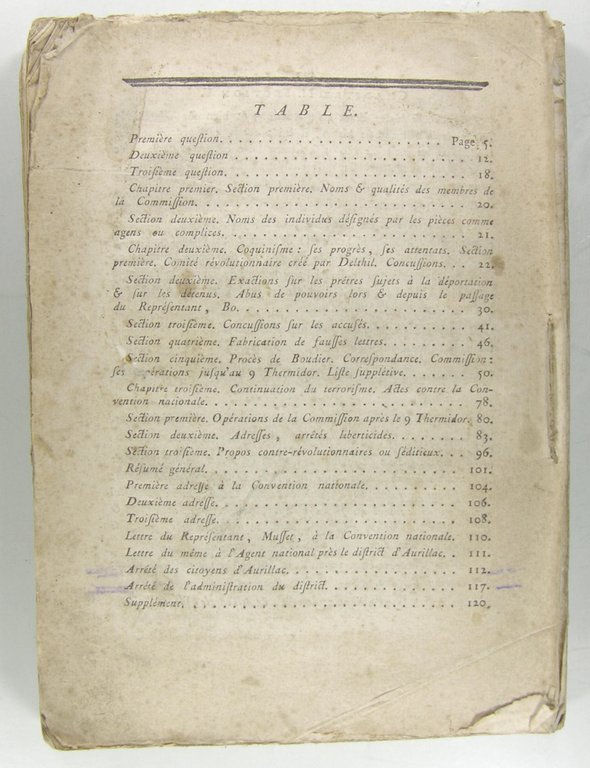 TABLE.
Première queſtion. . . . . . . . . . . . . . . . . . . . . . . Page 5.
Deuxième queſtion . . . . . . . . . . . . . . . . . . . . . . . 12.
Troiſième queſtion. . . . . . . . . . . . . . . . . . . . . . . 18.
Chapitre premier. Section première. Noms & qualités des membres de
la Commiſſion. . . . . . . . . . . . . . . . . . . . . . . . . 20.
Section deuxième. Noms des individus déſignés par les pièces comme
agens ou complices. . . . . . . . . . . . . . . . . . . . . . . 21.
Chapitre deuxième. Coquiniſme : ſes progrès, ſes attentats. Section
première. Comité révolutionnaire créé par Delthil. Concuſſions. . . 22.
Section deuxième. Exactions ſur les prêtres ſujets à la déportation
& ſur les détenus. Abus de pouvoirs lors & depuis le paſſage
du Repréſentant, Bo. . . . . . . . . . . . . . . . . . . . . . 30.
Section troiſième. Concuſſions ſur les accuſés. . . . . . . . . . 41.
Section quatrième. Fabrication de fauſſes lettres. . . . . . . . . 46.
Section cinquième. Procès de Boudier. Correſpondance. Commiſſion :
ſes opérations juſqu'au 9 Thermidor. Liſte ſupplétive. . . . . . 50.
Chapitre troiſième. Continuation du terroriſme. Actes contre la Con-
vention nationale. . . . . . . . . . . . . . . . . . . . . . . 78.
Section première. Opérations de la Commiſſion après le 9 Thermidor. 80.
Section deuxième. Adreſſes, arrêtés liberticides. . . . . . . . . 83.
Section troiſième. Propos contre-révolutionnaires ou ſéditieux. . . 96.
Réſumé général. . . . . . . . . . . . . . . . . . . . . . . . 101.
Première adreſſe à la Convention nationale. . . . . . . . . . . 104.
Deuxième adreſſe. . . . . . . . . . . . . . . . . . . . . . . 106.
Troiſième adreſſe. . . . . . . . . . . . . . . . . . . . . . . 108.
Lettre du Repréſentant, Muſſet, à la Convention nationale. 110.
Lettre du même à l'Agent national près le diſtrict d'Aurillac. . 111.
Arrêté des citoyens d'Aurillac. . . . . . . . . . . . . . . . . 112.
Arrêté de l'adminiſtration du diſtrict. . . . . . . . . . . . . . 117.
Supplément. . . . . . . . . . . . . . . . . . . . . . . . . . 120.